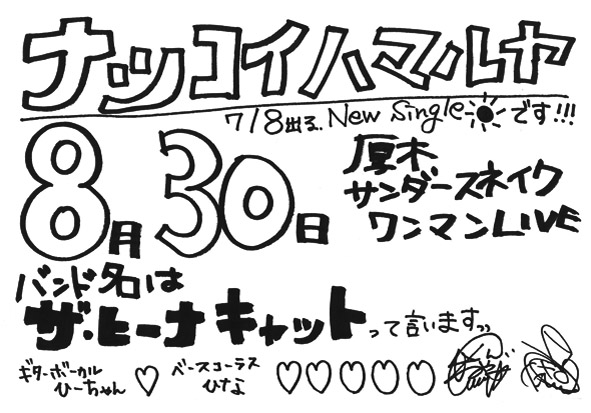 ナツコイハマルヤ
7/8出る、New Singleです!!!
8月30日
厚木
サンダースネイク
ワンマンLIVE
バンド名は
ザ・ヒーナキャットって言います〟
ギターボーカル
ひーちゃん♡
ベースコーラス
ひなよ♡♡♡♡♡